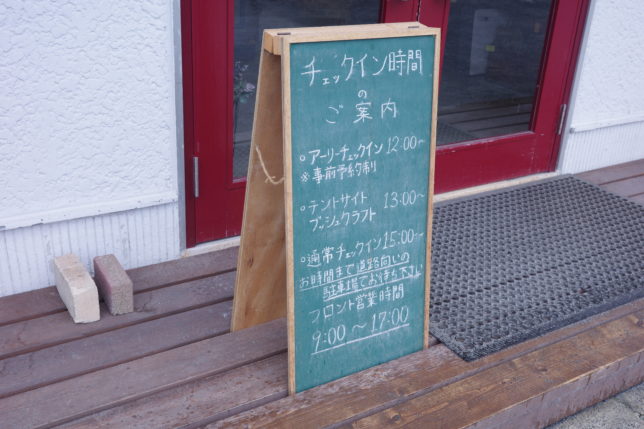 チェックイン時間
の
ご案内
○アーリーチェックイン 12:00~
※事前予約制
○テントサイト 13:00~
ブッシュクラフト
○通常チェックイン 15:00~
お時間まで道路向いの
駐車場でお待ち下さい
フロント営業時間
9:00 ~ 17:00